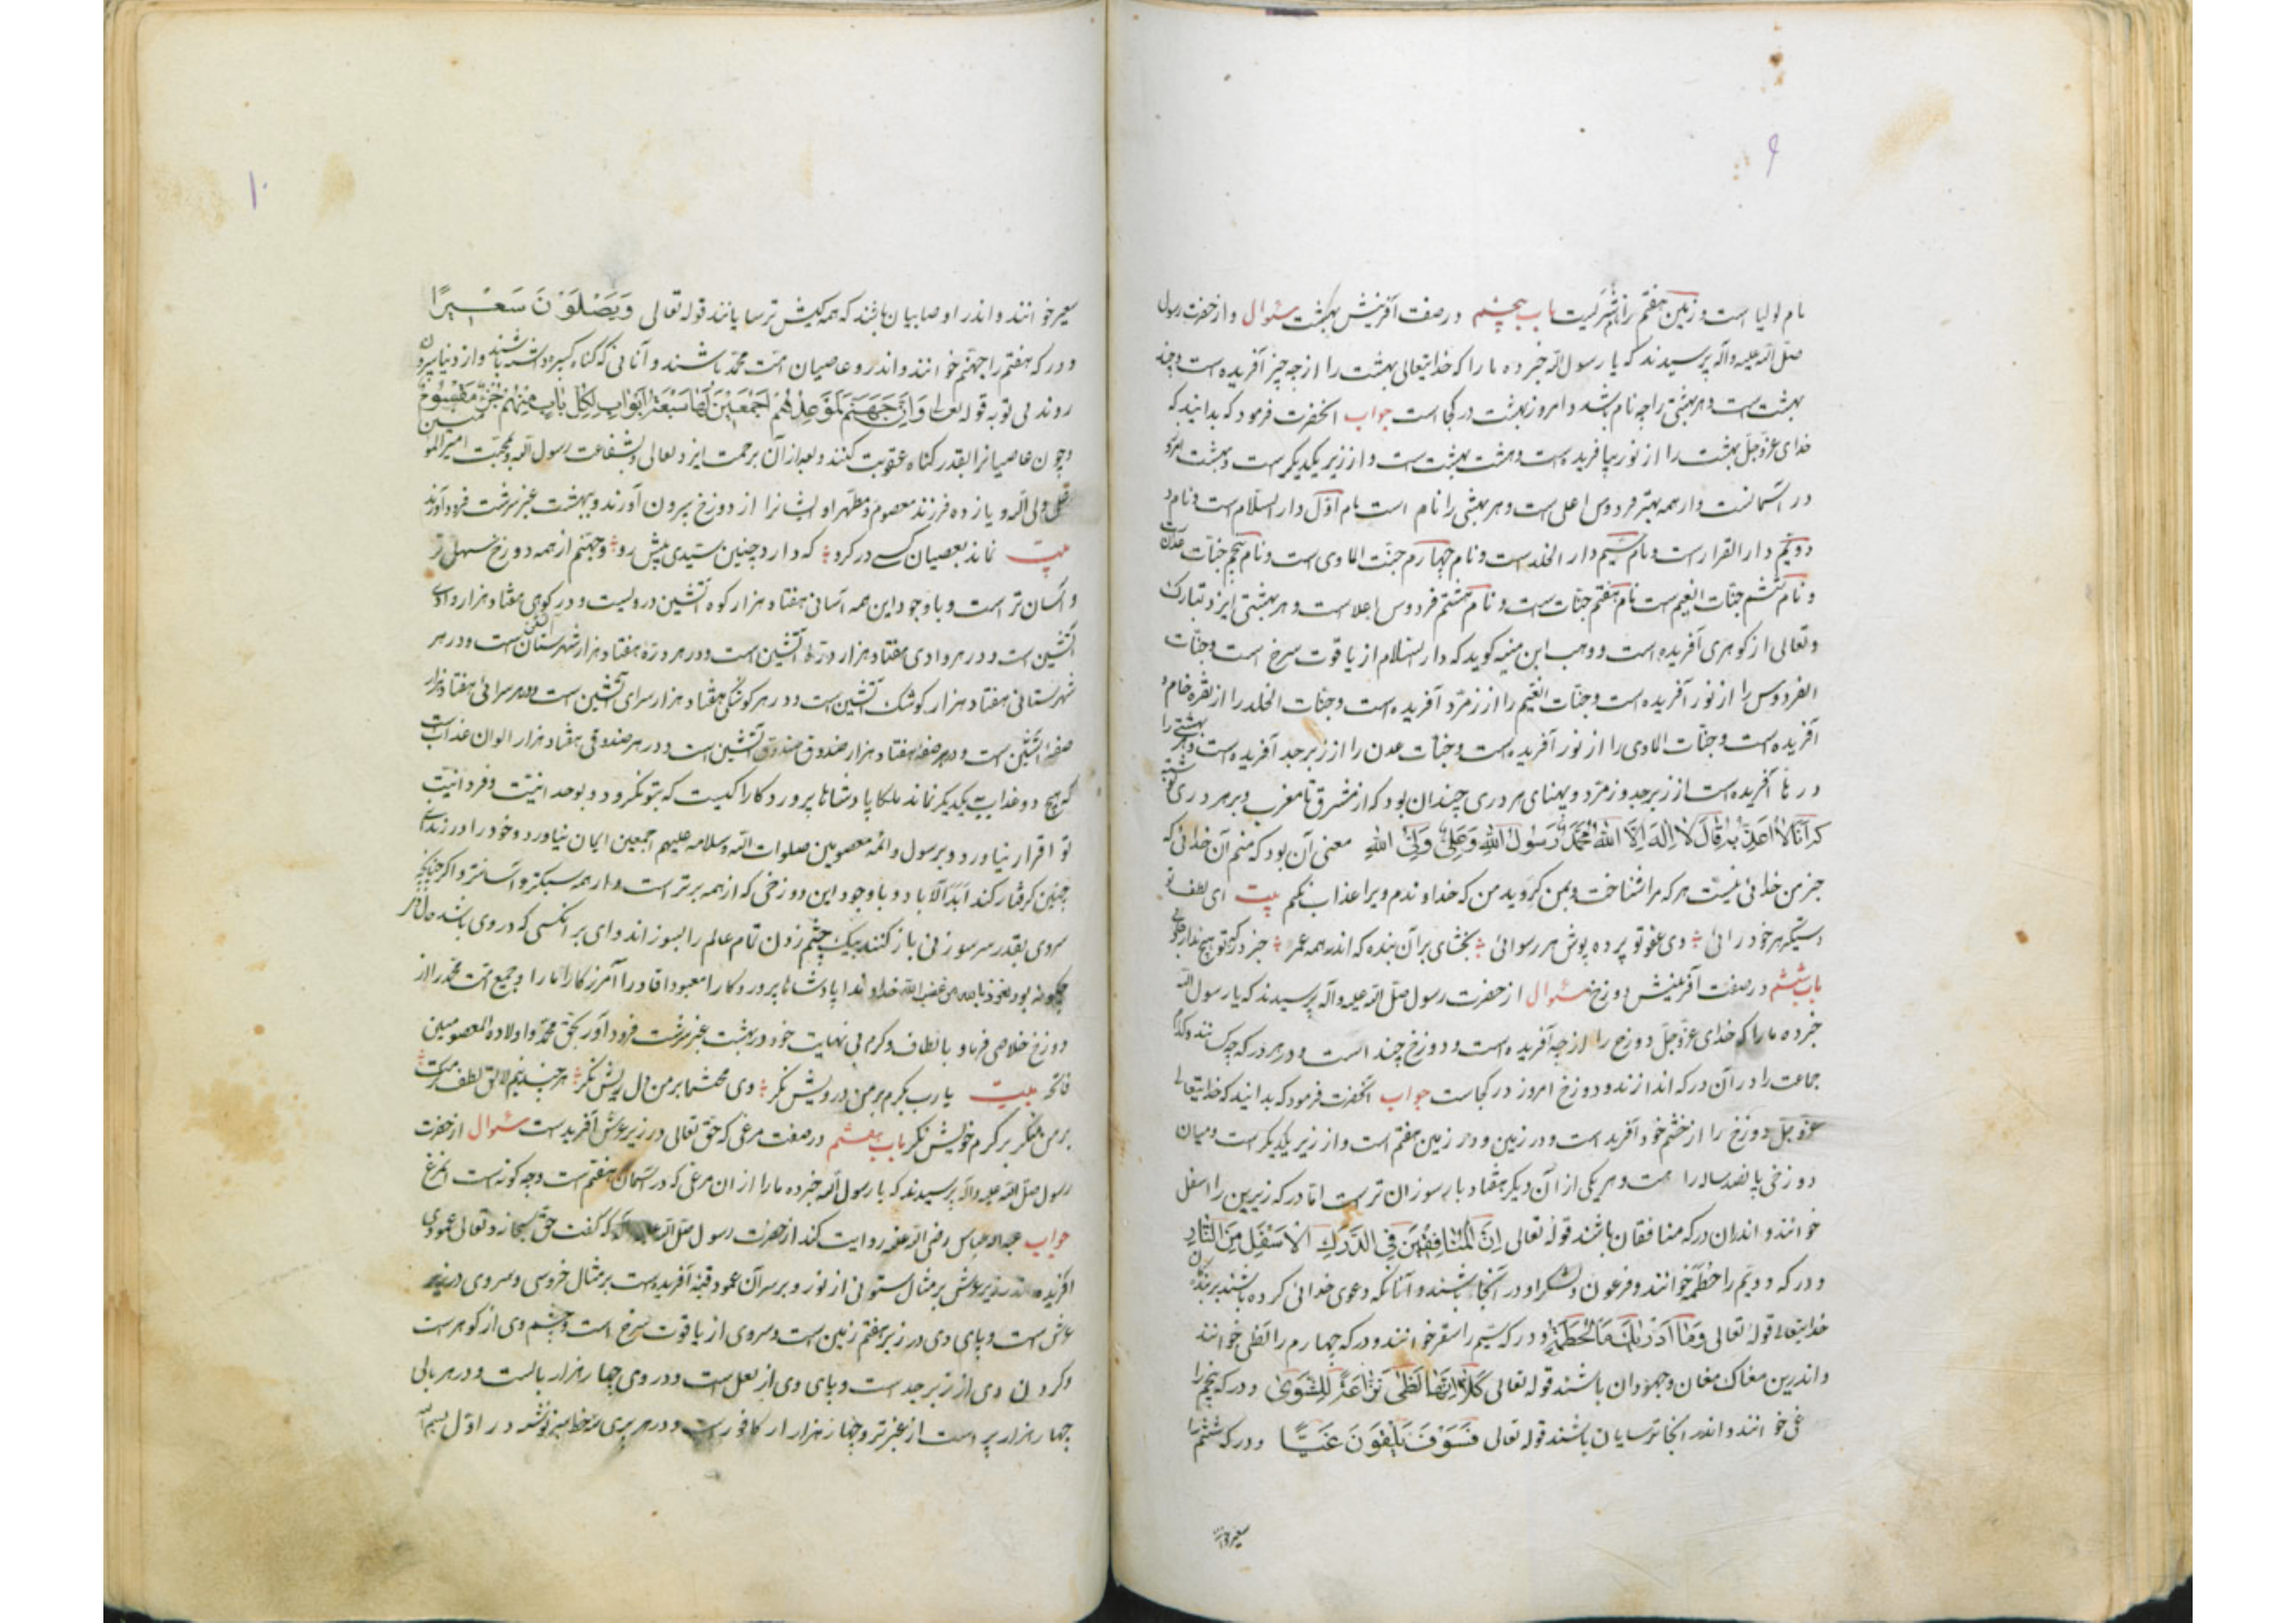 ۹
نام لولیا است و زمین هفتم را نام شرکیت باب پنجم در صفت آفرینش بهشت سئوال و از حضرت رسول
صلّی الله علیه وآله پرسیدند که یا رسول الله خبر ده ما را که خدایتعالی بهشت را از چه چیز آفریده است و چند
بهشت است و هر بهشتی را چه نام باشد و امروز بهشت در کجا است جواب آنحضرت فرمود که بدانید که
خدای عزّوجلّ بهشت را از نور بیافریده است و هشت بهشت است و از زیر یکدیگر است و بهشت امروز
در آسمانست و از همه بهتر فردوس اعلی است و هر بهشتی را نام است نام اوّل دار السّلام است و نام
دویّم دار القرار است و نام سیّم دار الخلد است و نام چهارم جنّت الماوی است و نام پنجم جنّات عدن
و نام ششم جنّات النعیم است نام هفتم جنّات است و نام هشتم فردوس اعلا است و هر بهشتی ایزد تبارک
وتعالی از کوهری آفریده است و وهب ابن منبه کوید که دار السّلام از یاقوت سرخ است وجنّات
الفردوس را از نور آفریده است وجنّات النعیم را از زمرّد آفریده است وجنّات الخلد را از نقره خام
آفریده است وجنّات الماوی را از نور آفریده است وجنّات عدن را از زبرجد آفریده است و هر بهشتی را
درها آفریده است از زبرجد و زمرّد و پهنای هر دری چندان بود که از مشرق تا مغرب و بر هر دری نوشته
که اَنَا لا اُعَذِّبُ مَنْ قالَ لا اِلهَ اِلَّا اللهُ مُحَمَّدٌ رَسُولُ اللهِ وَعَلِیٌّ وَلِیُّ اللهِ معنی آن بود که منم آن خدائی که
جز من خدائی نیست هر که مرا شناخت و بمن کروید من که خداوندم ویرا عذاب نکنم بیت ای لطف تو
دستگیر هر خود رائی وی عفو تو پرده پوش هر رسوائی بخشای بر آن بنده که اندر همه عمر جز درکه تو هیچ ندارد جائی
باب ششم در صفت آفرینش دوزخ سئوال از حضرت رسول صلّی الله علیه وآله پرسیدند که یا رسول الله
خبر ده ما را که خدای عزّوجلّ دوزخ را از چه آفریده است و دوزخ چند است و در هر درکه چه کسانند و کدام
جماعت را در آن درکه اندازند و دوزخ امروز در کجاست جواب آنحضرت فرمود که بدانید که خدایتعالی
عزّوجلّ دوزخ را از خشم خود آفرید است و در زمین و در زمین هفتم است و از زیر یکدیگر است و میان
دوزخی پانصد ساله راه است و هر یکی از آن دیگر هفتاد بار سوزان تر است امّا درکه زیرین را اسفل
خوانند و اندران درکه منافقان باشند قوله تعالی اِنَّ الْمُنافِقینَ فِی الدَّرَكِ الْاَسْفَلِ مِنَ النّارِ
و درکه دویّم را حطمه خوانند و فرعون و لشکر او در آنجا باشند و آنانکه دعوی خدائی کرده باشند بر بندگان
خدایتعالی قوله تعالی وَما اَدْریكَ مَا الْحُطَمَة و درکه سیّم را سقر خوانند و درکه چهارم را لظی خوانند
و اندرین مغاک مغان و جهودان باشند قوله تعالی کَلّا اِنَّها لَظی نَزّاعَةً لِلشَّوی و درکه پنجم را
غی خوانند و اندر آنجا ترسایان باشند قوله تعالی فَسَوْفَ یَلْقَوْنَ غَیًّا و درکه ششم را
سعیر خوا
۱۰
سعیر خوانند و اندر او صابیان باشند که همه کیش ترسایانند قوله تعالی وَیَصْلَوْنَ سَعیرًا
و درکه هفتم را جهنّم خوانند و اندرو عاصیان امّت محمّد باشند و آنانی که کناه کبیره داشته باشند و از دنیا بیرون
روند بی توبه قوله تعالی وَاِنَّ جَهَنَّمَ لَمَوْعِدُهُمْ اَجْمَعینَ لَها سَبْعَةُ اَبْوابٍ لِکُلِّ بابٍ مِنْهُمْ جُزْءٌ مَقْسُومٌ
وچون عاصیانرا بقدر کناه عقوبت کنند و بعد از آن برحمت ایزد تعالی و بشفاعت رسول الله و محبّت امیر المؤمنین
علی ولی الله و یازده فرزند معصوم و مطهّر او ایشانرا از دوزخ بیرون آورند و ببهشت عنبر سرشت فرود آورند
بیت نماند بعصیان کسی در کرو که دارد چنین سیّدی پیش رو و جهنّم از همه دوزخ سهل تر
و آسان تر است و با وجود این همه آسانی هفتاد هزار کوه آتشین دروست و در کوهی هفتاد هزار وادی
آتشین است و در هر وادی هفتاد هزار درّه آتشین است و در هر درّه هفتاد هزار شهرستان آتشین است و در هر
شهرستانی هفتاد هزار کوشک آتشین است و در هر کوشکی هفتاد هزار سرای آتشین است و در هر سرائی هفتاد هزار
صفه آتشین است و در هر صفه هفتاد هزار صندوق آتشین است و در هر صندوقی هفتاد هزار الوان عذاب است
که هیچ دو عذاب بیکدیگر نماند ملکا پادشاها پروردکارا کیست که بتو نکرود و بوحدانیّت و فردانیّت
تو اقرار نیاورد و برسول و ائمه معصومین صلوات الله وسلامه علیهم اجمعین ایمان نیاورد و خود را در زندان
چنین کرفتار کند اَبَدَ الآباد و با وجود این دوزخی که از همه برتر است و از همه سبکتر و آسانتر و اکر چنانچه
سروی بقدر سر سوزنی باز کنند بیک چشم زدن تمام عالم را بسوزاند وای بر آنکسی که در وی باشد
چکونه بود نعوذ بالله من غضب الله خداوندا پادشاها پروردکارا معبودا قادرا آمرزکارا ما را و جمیع امّت محمّد را از
دوزخ خلاصی فرما و بالطاف وکرم بی نهایت خود در بهشت عنبر سرشت فرود آور بحقّ محمّد و اولاده المعصومین
فاتحه بیت یا رب بکرم بر من درویش نکر وی محتشما بر من دل ریش نکر هر چند نیم لایق لطف و کرمت
بر من منکر بر کرم خویش نکر باب هفتم در صفت مرغی که حق تعالی در زیر عرش آفریده است سئوال از حضرت
رسول صلّی الله علیه وآله پرسیدند که یا رسول الله خبر ده ما را از ان مرغی که در آسمان هفتم است و چه کونه است آنمرغ
جواب عبد الله عباس رضی الله عنه روایت کند از حضرت رسول صلّی الله علیه وآله که کفت حقّ سبحانه وتعالی عمودی
آفریده در زیر عرش بر مثال ستونی از نور و بر سر آن عمود قبّه آفریده است بر مثال خروسی و سروی در زیر
عرش است و پای وی در زیر هفتم زمین است و سروی از یاقوت سرخ است و چشم وی از کوهر است
وکردن وی از زبرجد است و پای وی از لعل است و در وی چهار هزار بالست و در هر بالی
چهار هزار پر است از عنبر تر و چهار هزار از کافور است و در هر پری بخط سبز نوشته در اوّل بسم الله